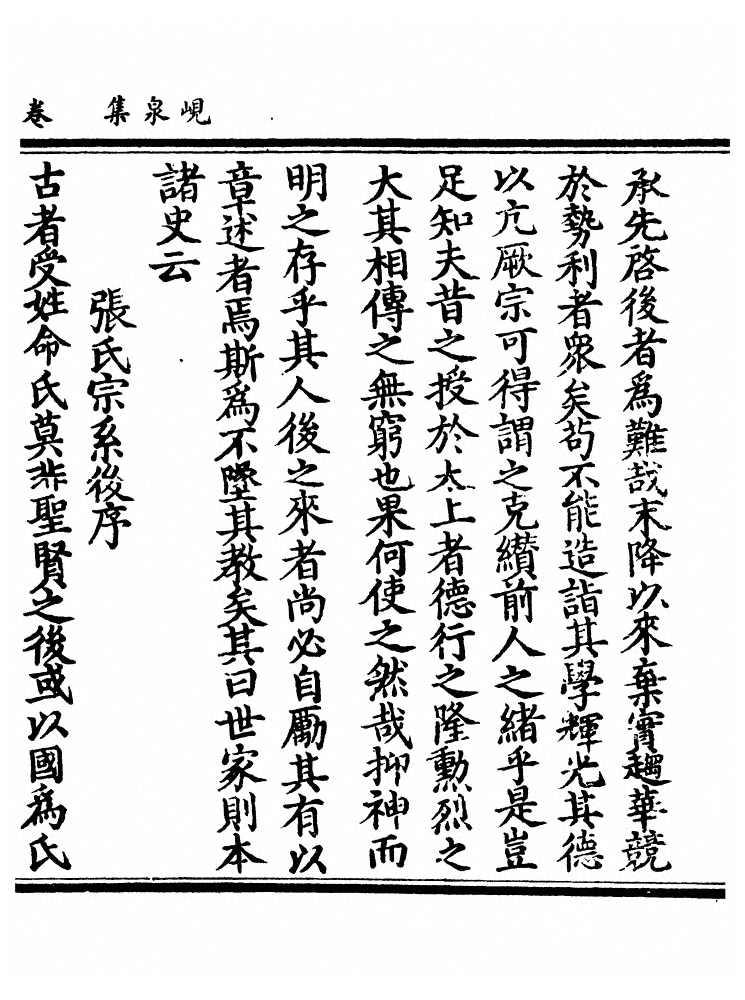 峴泉集 卷
承先啓後者爲難哉末降以來棄實趨華競
於勢利者衆矣茍不能造詣其學輝光其德
以亢厥宗可得謂之克纘前人之緒乎是豈
足知夫昔之授於太上者德行之隆勲烈之
大其相傳之無窮也果何使之然哉抑神而
明之存乎其人後之來者尚必自勵其有以
章述者焉斯爲不墜其教矣其曰世家則本
諸史云
張氏宗系後序
古者受姓命氏莫非聖賢之後或以國爲氏